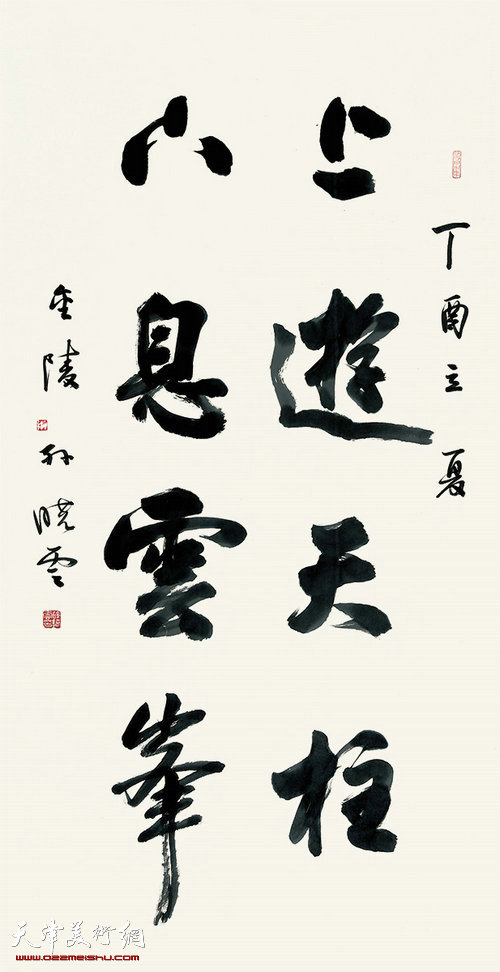 丁酉立夏
上遊天柱
下息雲峯
金陵孫曉雲
天津美術網
www.022meishu.com